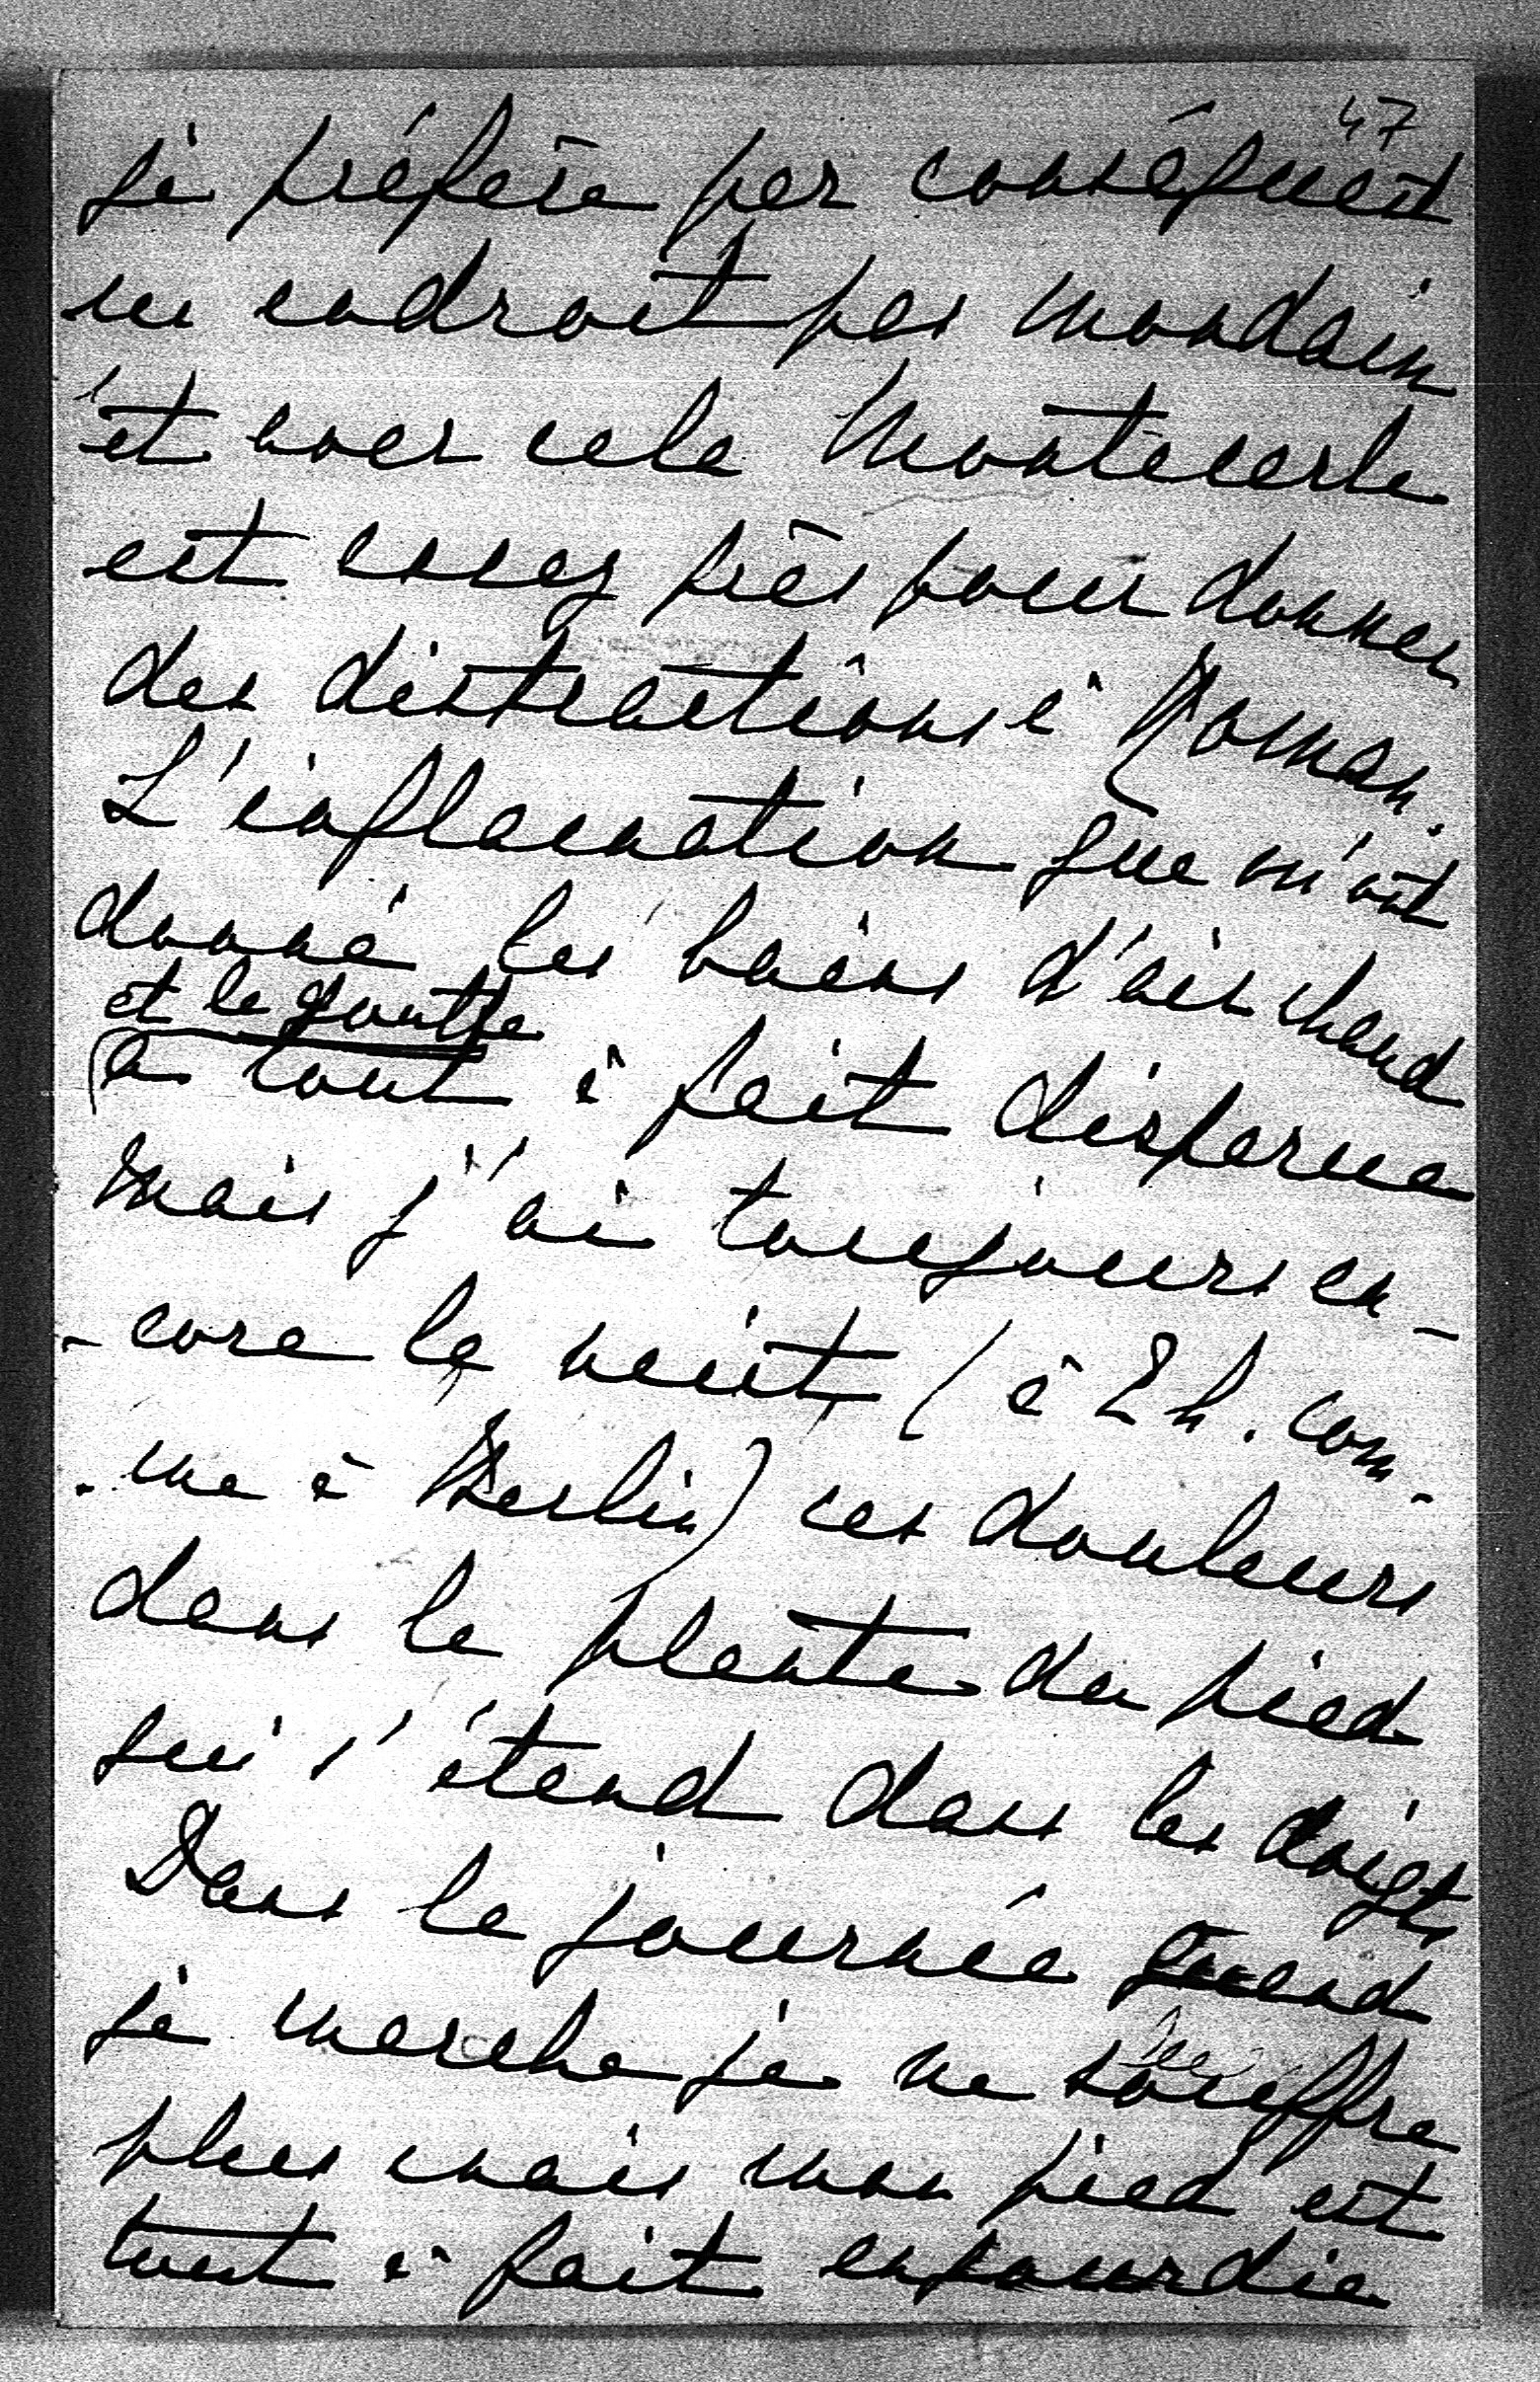 47
je préfère par conséquent
un endroit pas mondain
et avec cela Montecarlo
est assez près pour donner
des distractions à Roman.
L'inflamation que m'ont
donné les bains d'air chaud
et la goutte
a tout à fait disparue
mais j'ai toujours en-
-core la nuit (à 2 h. com-
-me à Berlin) ces douleurs
dans la plante du pied
qui s'étend dans les doigts
Dans la journée quand
je marche je ne souffre
plus mais mon pied est
tout à fait engourdie